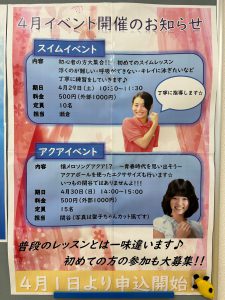 4月イベント開催のお知らせ
スイムイベント
内容 初心者の方大集合!! 初めてのスイムレッスン
浮くのが難しい・呼吸ができない・キレイに泳ぎたいなど
丁寧に練習をしていきます♪
日時 4月29日(土) 10:30~11:30
料金 500円(外部1000円)
定員 10名
担当
丁寧に指導します☆
アクアイベント
内容 懐メロソングアクア!? ~青春時代を思い出そう~
アクアポールを使ったエクササイズも行います☆
いつもの関谷ではありませんよ!!!
日時 4月30日(日) 14:00~15:00
料金 500円(外部1000円)
定員 15名
担当 関谷(写真は聖子ちゃんカット風です)
普段のレッスンとは一味違います♪
初めての方の参加も大募集!!
4月1日より申込開始